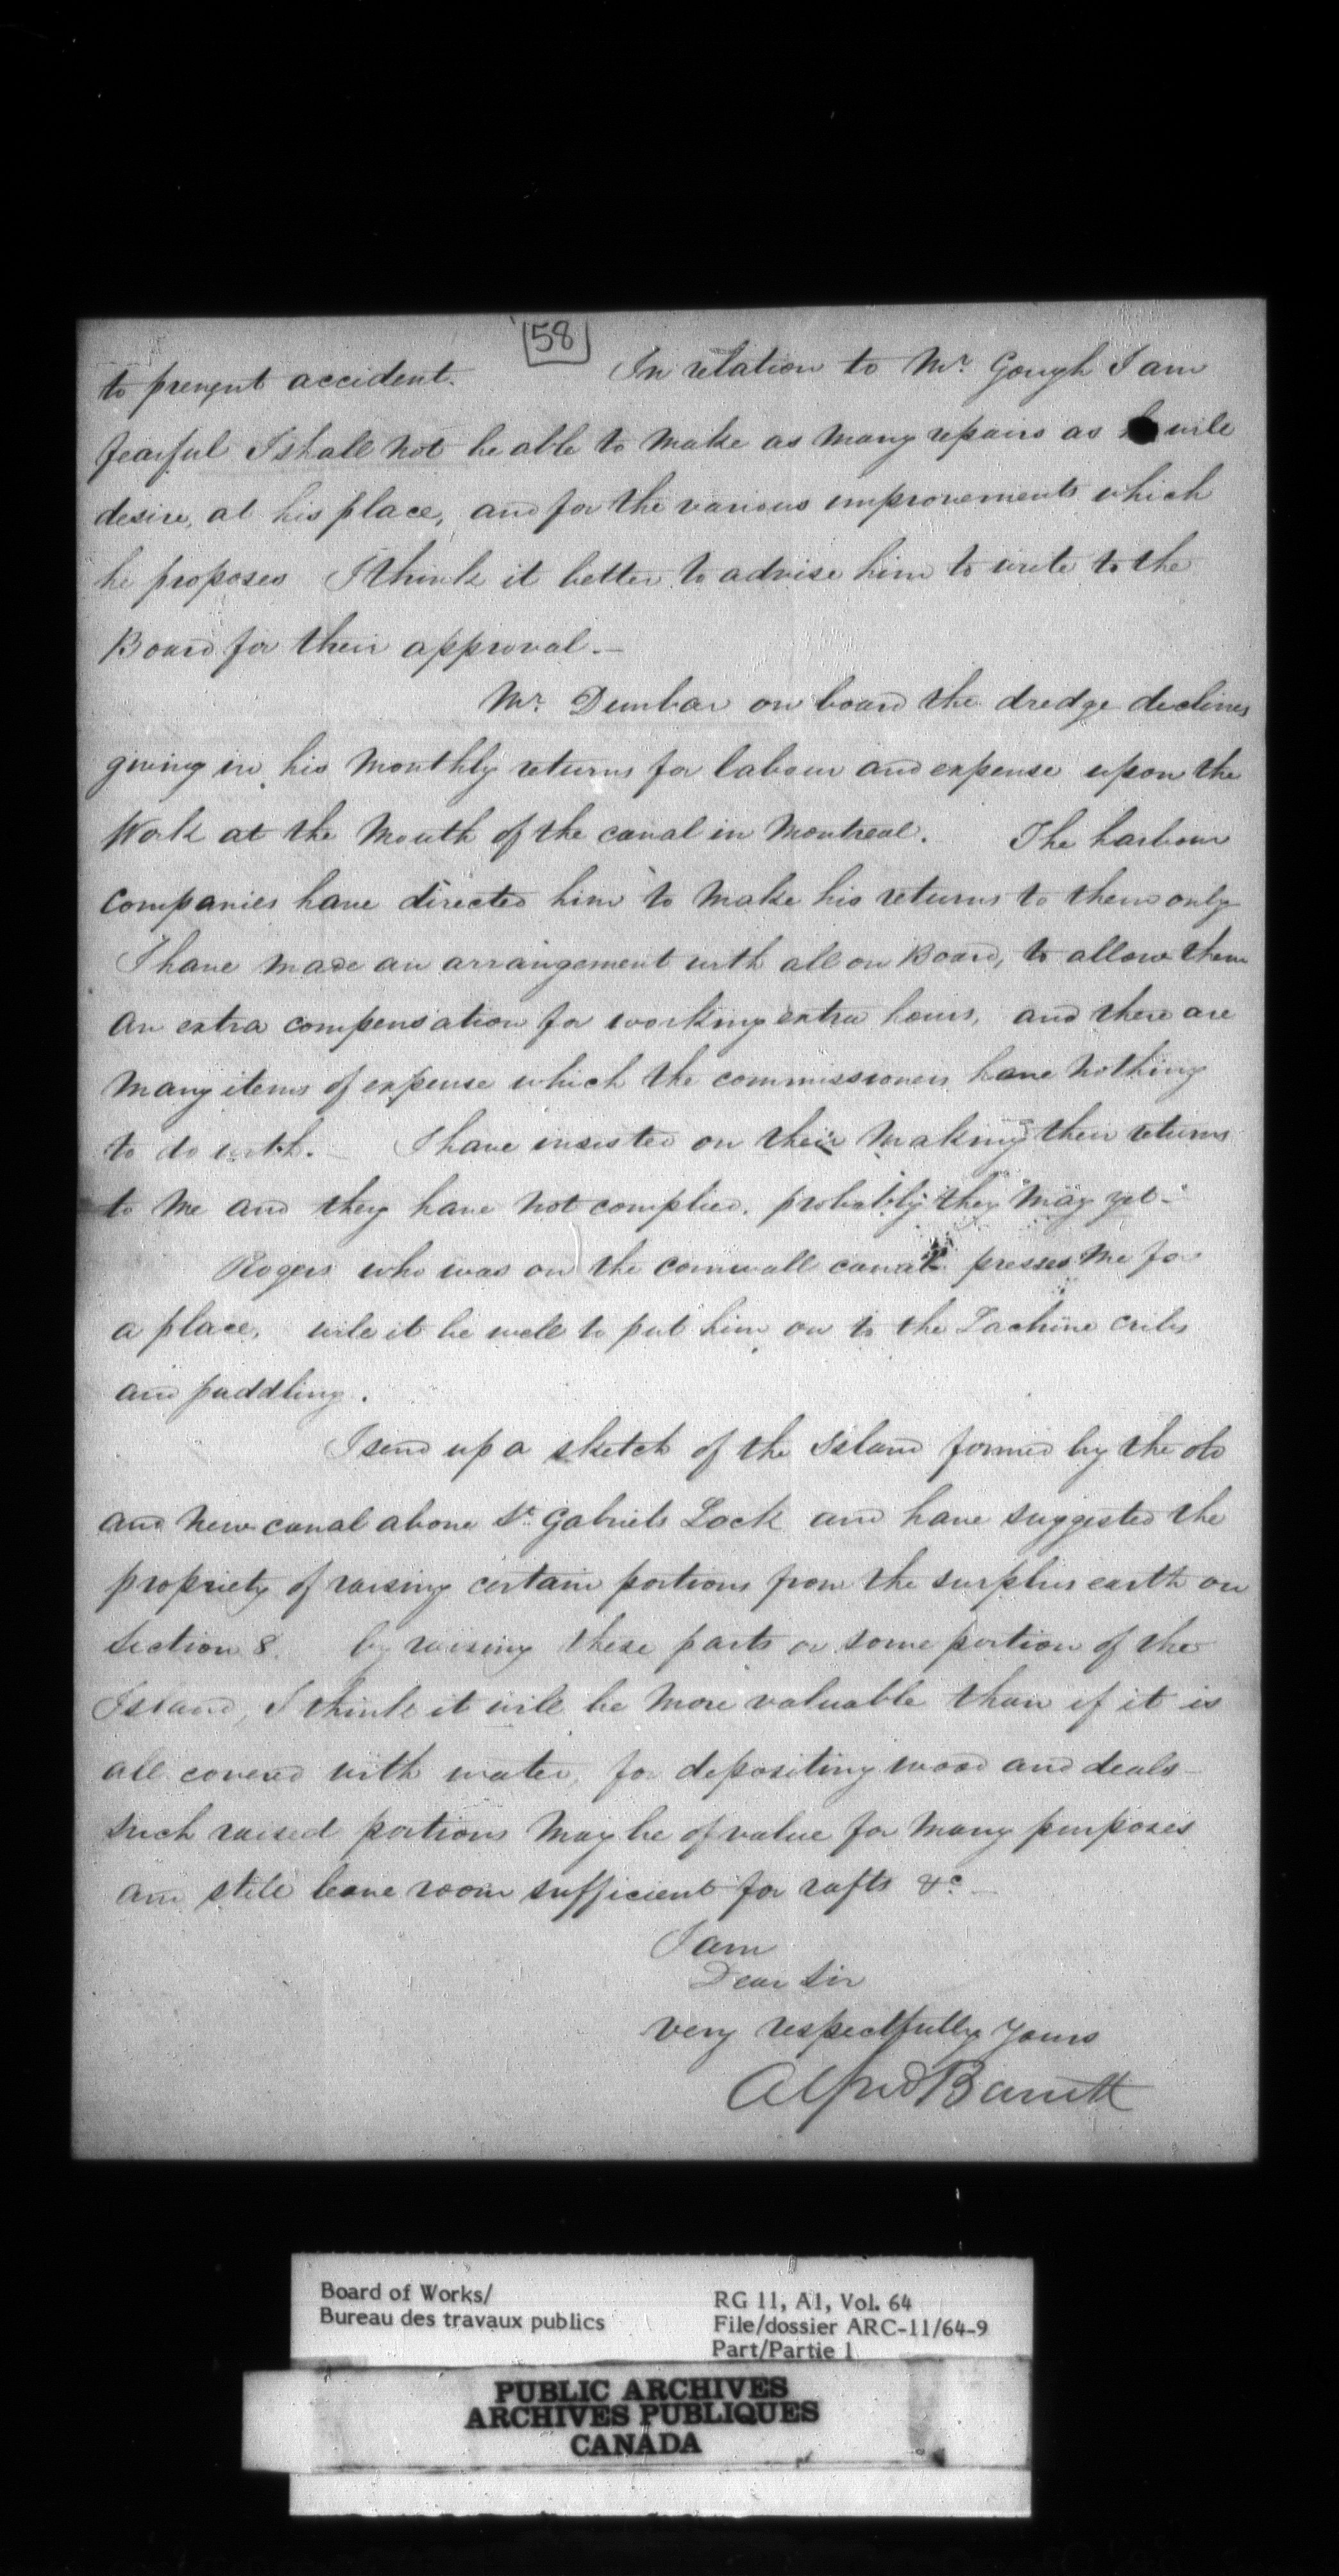 58
to prevent accident. In relation to Mr. Gough I am
fearful I shall not be able to make as many repairs as he will
desire, at his place, and for the various improvements which
he proposes I think it better to advise him to write to the
Board for their approval. —
Mr. Dunbar on board the dredge declines
giving in his monthly returns for labour and expense upon the
Work at the Mouth of the canal in Montreal. The harbour
companies have directed him to make his returns to them only
I have made an arrangement with all on Board, to allow them
an extra compensation for working extra hours, and there are
many items of expense which the commissioners have nothing
to do with. — I have insisted on their making their returns
to me and they have not complied. probably they may yet —
Rogers who was on the cornwall canal presses me for
a place, will it be well to put him on to the Lachine cribs
and puddling.
I send up a sketch of the Island formed by the old
and new canal above St. Gabriels Lock and have suggested the
propriety of raising certain portions from the surplus earth on
Section 8. by raising these parts or some portion of the
Island, I think it will be more valuable than if it is
all covered with water, for depositing wood and deals —
Such raised portions may be of value for many purposes
and still leave room sufficient for rafts &c —
I am
Dear Sir
very respectfully yours
Alfred Barrett
Board of Works/
Bureau des travaux publics
RG 11, A1, Vol. 64
File/dossier ARC-11/64-9
Part/Partie 1
PUBLIC ARCHIVES
ARCHIVES PUBLIQUES
CANADA